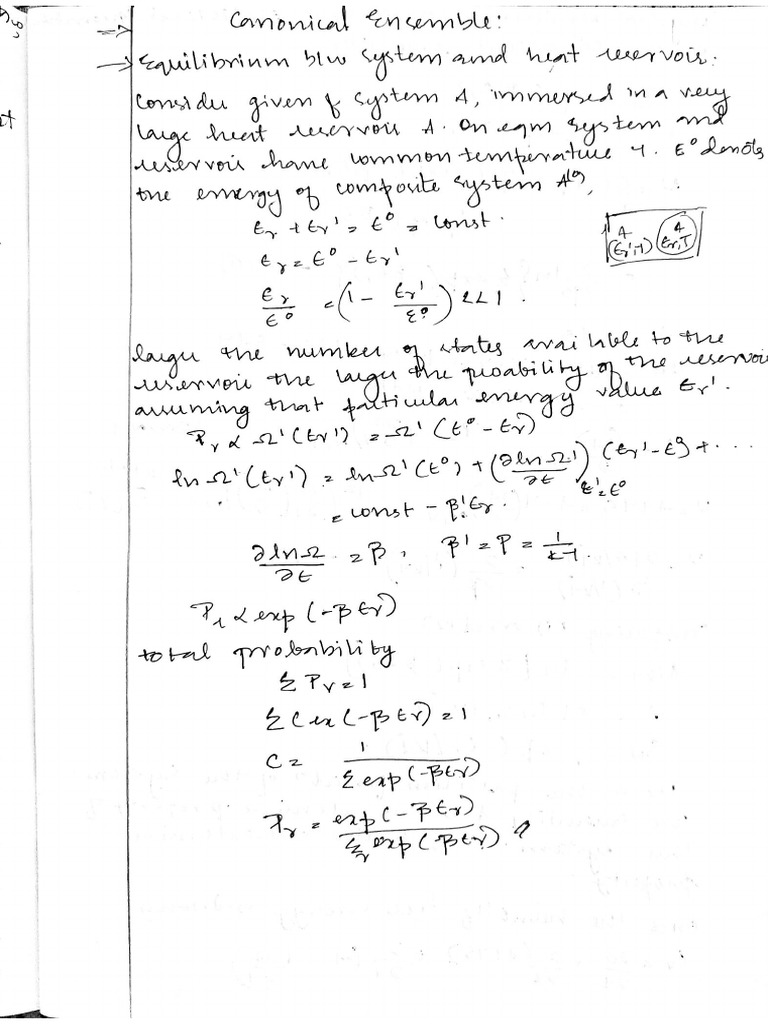 ⇒ Canonical Ensemble:
→ Equilibrium b/w system and heat reservoir.
Consider given of system A, immersed in a very
large heat reservoir A. On eqm system and
reservoir have common temperature T. E° denots
the energy of composite system A⁽⁰⁾,
Er + Er' = E° = const.
Er = E° - Er'
Er/E° = (1 - Er'/E°) <<1.
A
(Er',T)
A
Er,T
larger the number of states available to the
reservoir the larger the proability of the reservoir
assuming that particular energy value Er'.
Pr ∝ Ω'(Er') = Ω'(E° - Er)
ln Ω'(Er') = ln Ω'(E°) + (∂lnΩ'/∂E)E'=E° (Er' - E°) + ...
= const - β'Er.
∂lnΩ/∂E = β, β' = β = 1/kT.
Pr ∝ exp(-βEr)
total probability
Σ Pr = 1
Σ C ex(-βEr) = 1
C = 1/Σ exp(-βEr)
Pr = exp(-βEr)/Σr exp(-βEr)